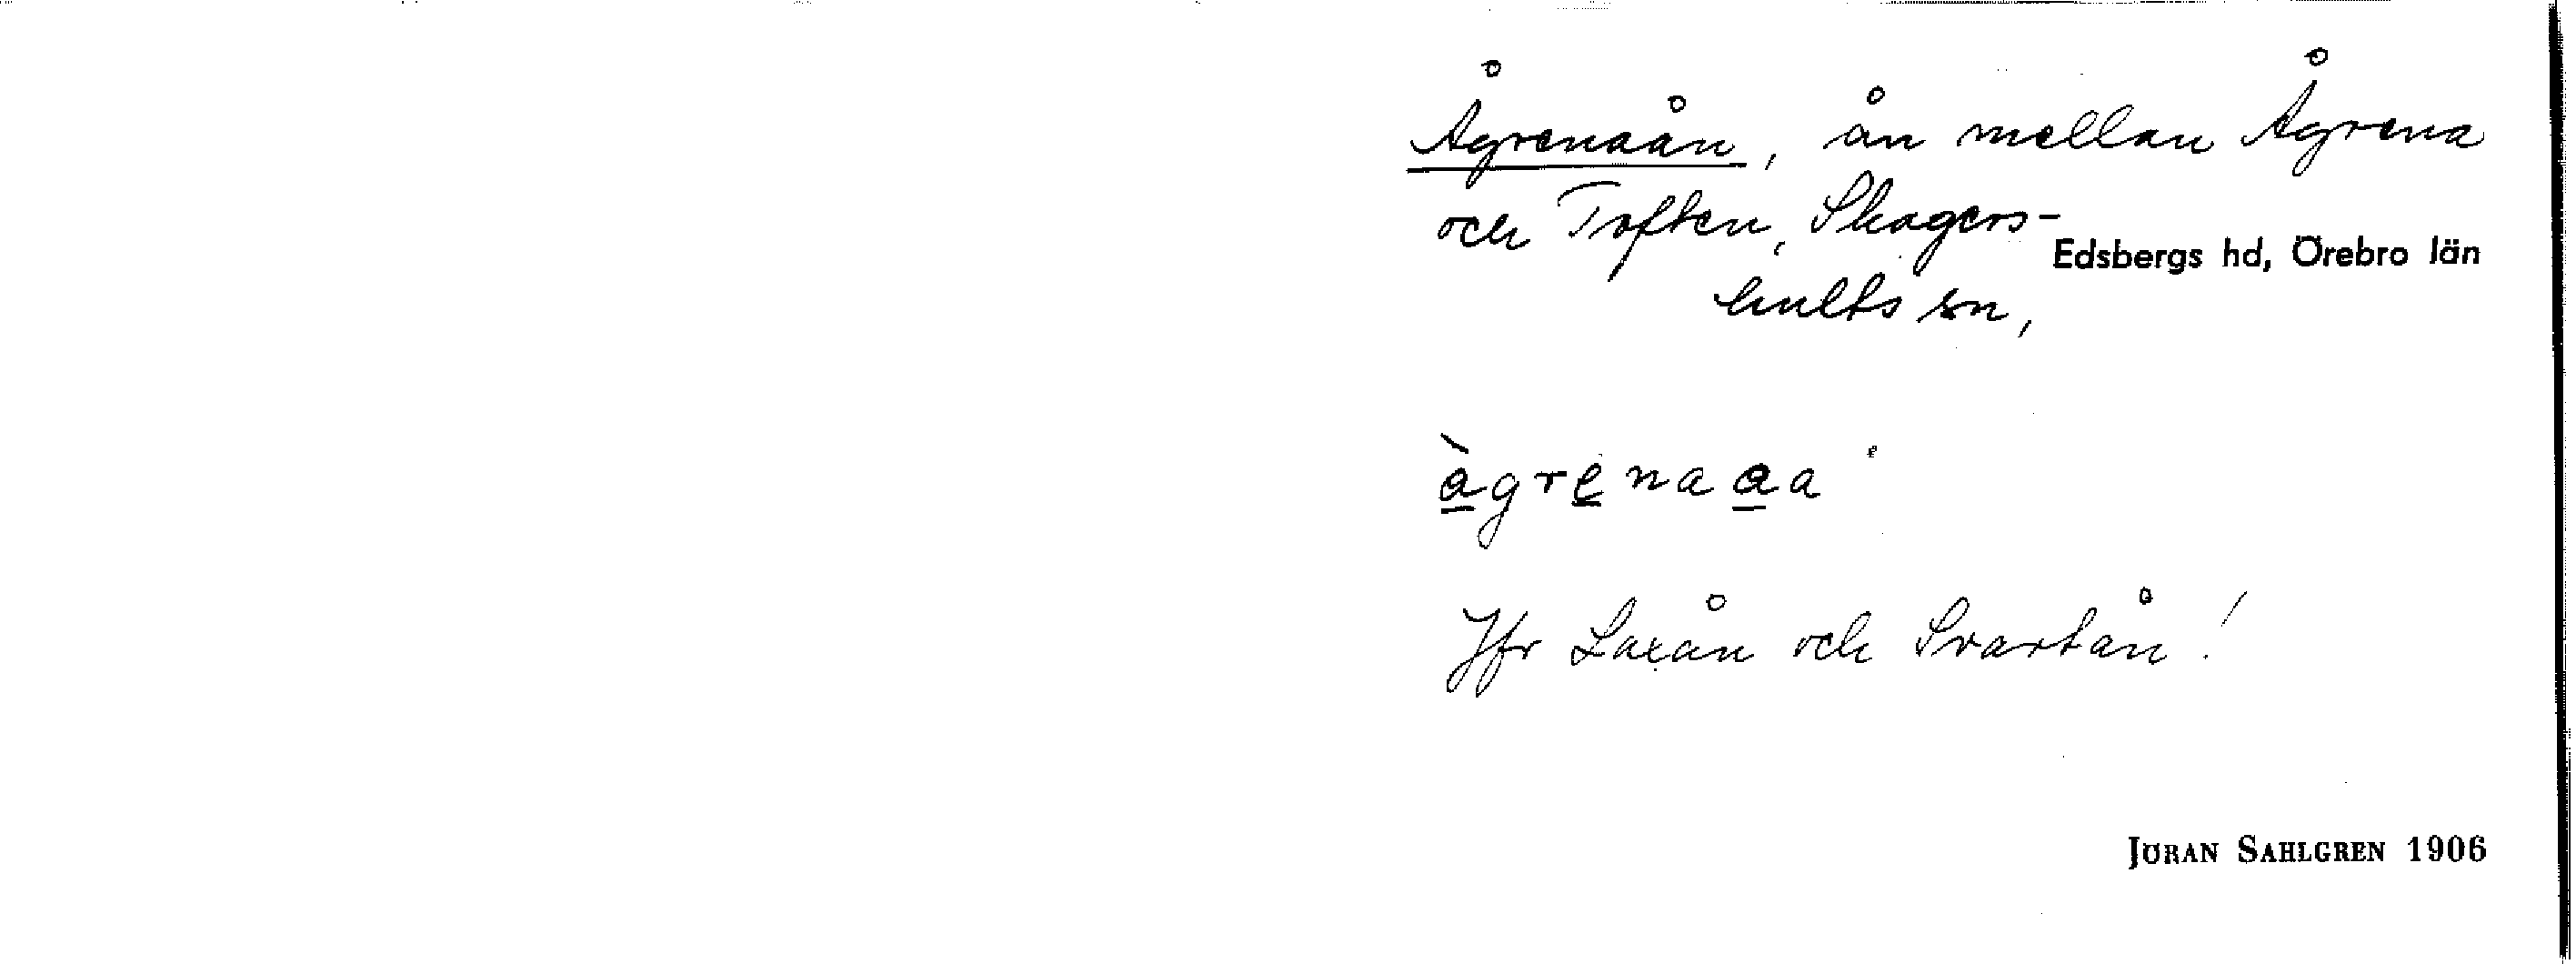 Ågrenaån, ån mellan Ågrena
och Toften, Skagers-
hults sn, Edsbergs hd, Örebro län
àgrenaaa
Jfr Laxån och Svartån!
JÖRAN SAHLGREN 1906